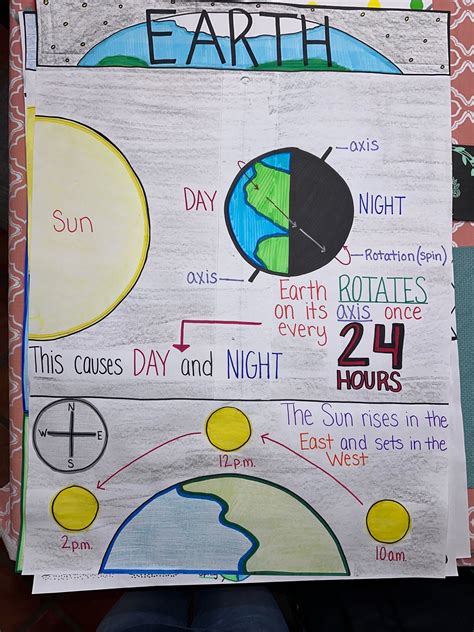 EARTH
axis
Sun
DAY
NIGHT
Rotation (spin)
axis
Earth ROTATES
on its axis once
every 24
HOURS
This causes DAY and NIGHT
N
W E
S
The Sun rises in the
East and sets in the
West
12p.m.
2p.m.
10am.